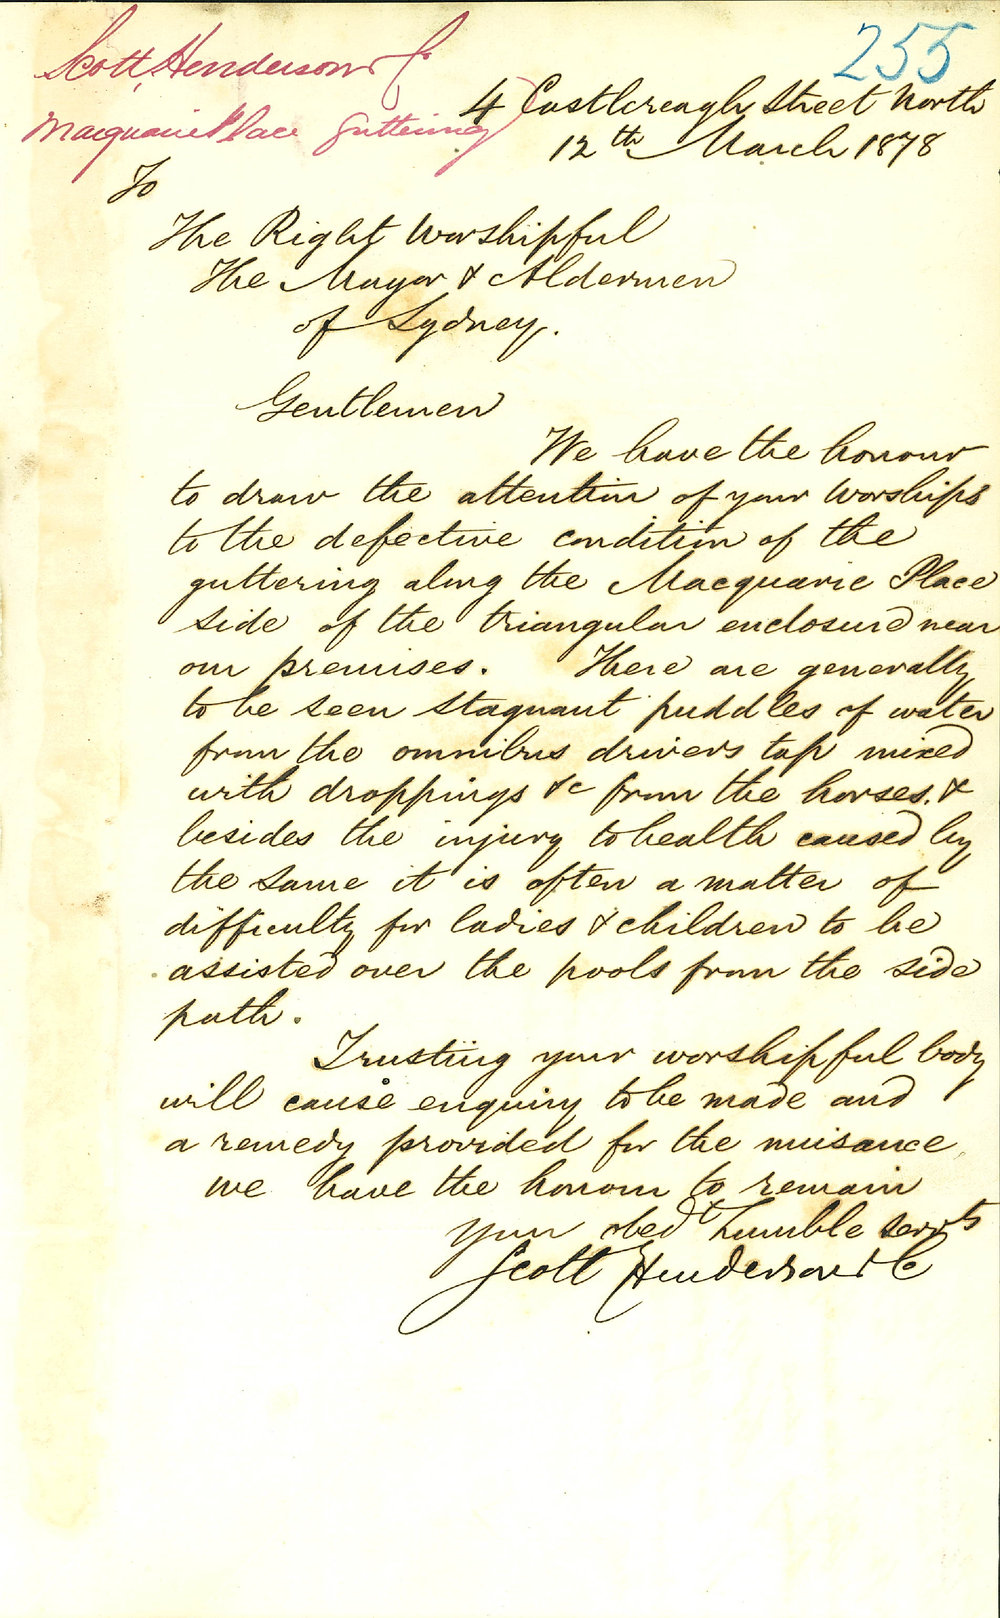 Scott, Henderson & Co
255
Macquarie Place guttering
4 Castlereagh Street North
12th March 1878
To
The Right Worshipful
The Mayor & Aldermen
of Sydney.
Gentlemen
We have the honour
to draw the attention of your Worships
to the defective condition of the
guttering along the Macquarie Place
side of the triangular enclosure near
our premises. There are generally
to be seen stagnant puddles of water
from the omnibus drivers tap mixed
with droppings &c from the horses. &
besides the injury to health caused by
the same it is often a matter of
difficulty for ladies & children to be
assisted over the pools from the side
path.
Trusting your worshipful body
will cause enquiry to be made and
a remedy provided for the nuisance,
we have the honour to remain
your obedt humble servts
Scott Henderson & Co